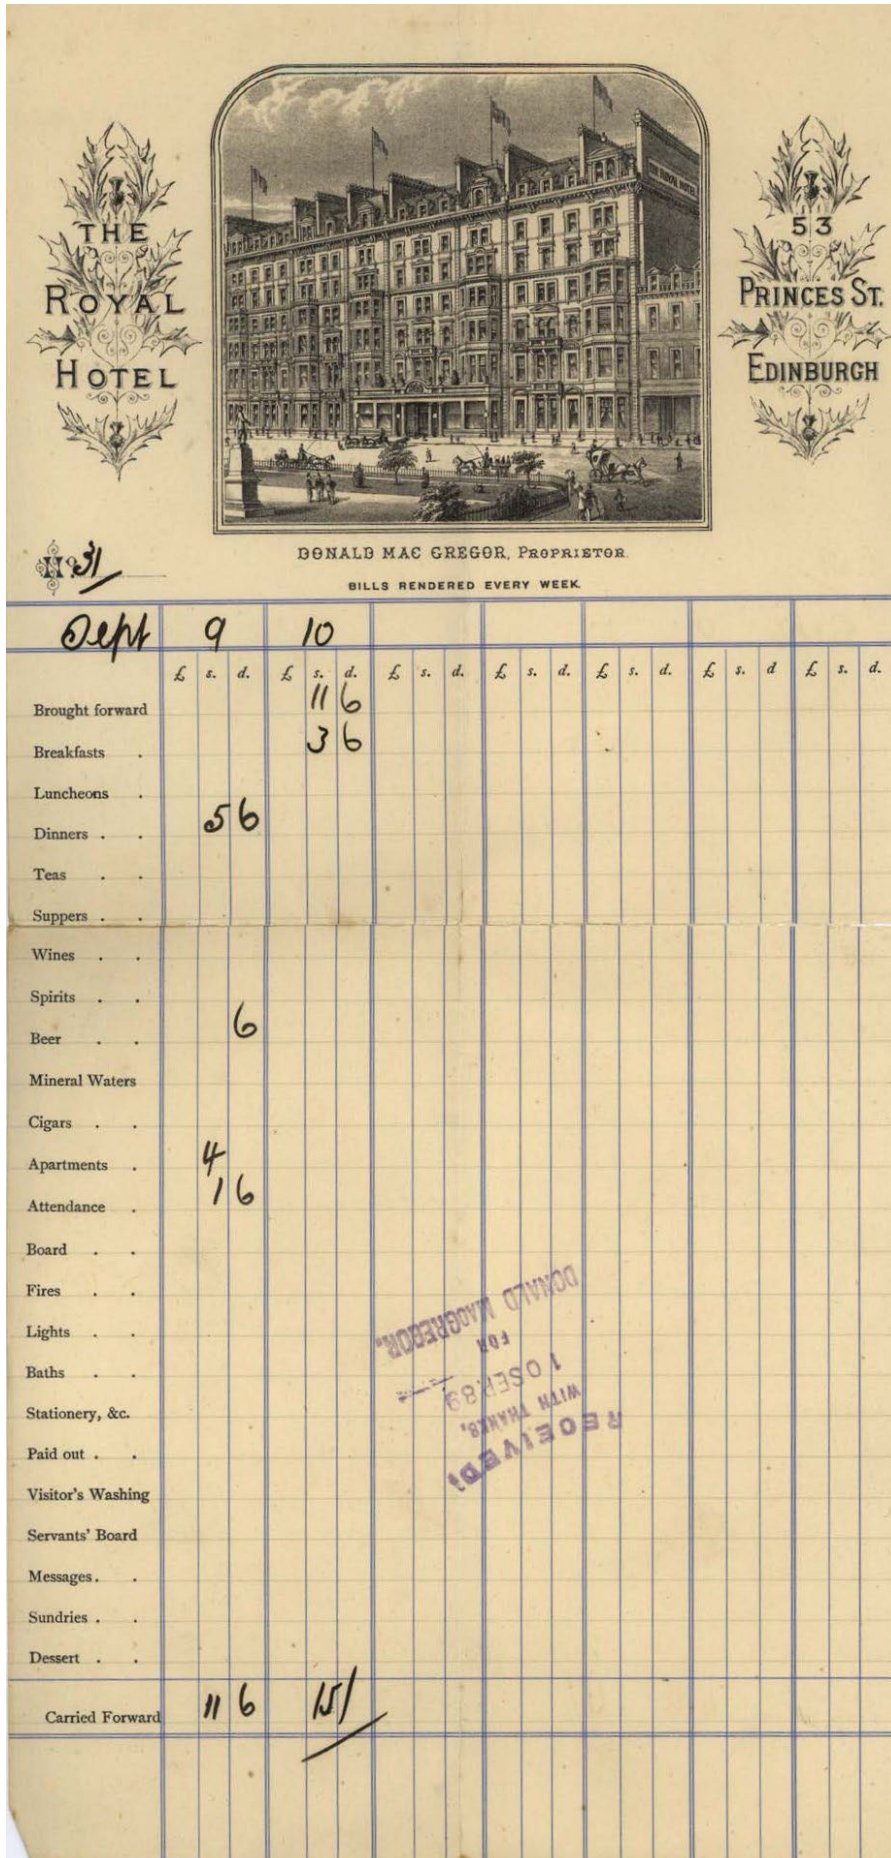 THE
ROYAL
HOTEL
THE ROYAL HOTEL
53
PRINCES ST.
EDINBURGH
DONALD MAC GREGOR, PROPRIETOR.
No. 31
BILLS RENDERED EVERY WEEK.
Sept 9 10
£ s. d. £ s. d. £ s. d. £ s. d. £ s. d. £ s. d £ s. d.
Brought forward 11 6
Breakfasts . 3 6
Luncheons .
Dinners . . 5 6
Teas . .
Suppers . .
Wines . .
Spirits . .
Beer . . 6
Mineral Waters
Cigars . .
Apartments . 4
Attendance . 1 6
Board . .
Fires . .
Lights . .
Baths . .
Stationery, &c.
Paid out . .
Visitor's Washing
Servants' Board
Messages . .
Sundries . .
Dessert . .
Carried Forward 11 6 15/
RECEIVED,
WITH THANKS,
10 SEP. 89
FOR
DONALD MACGREGOR.